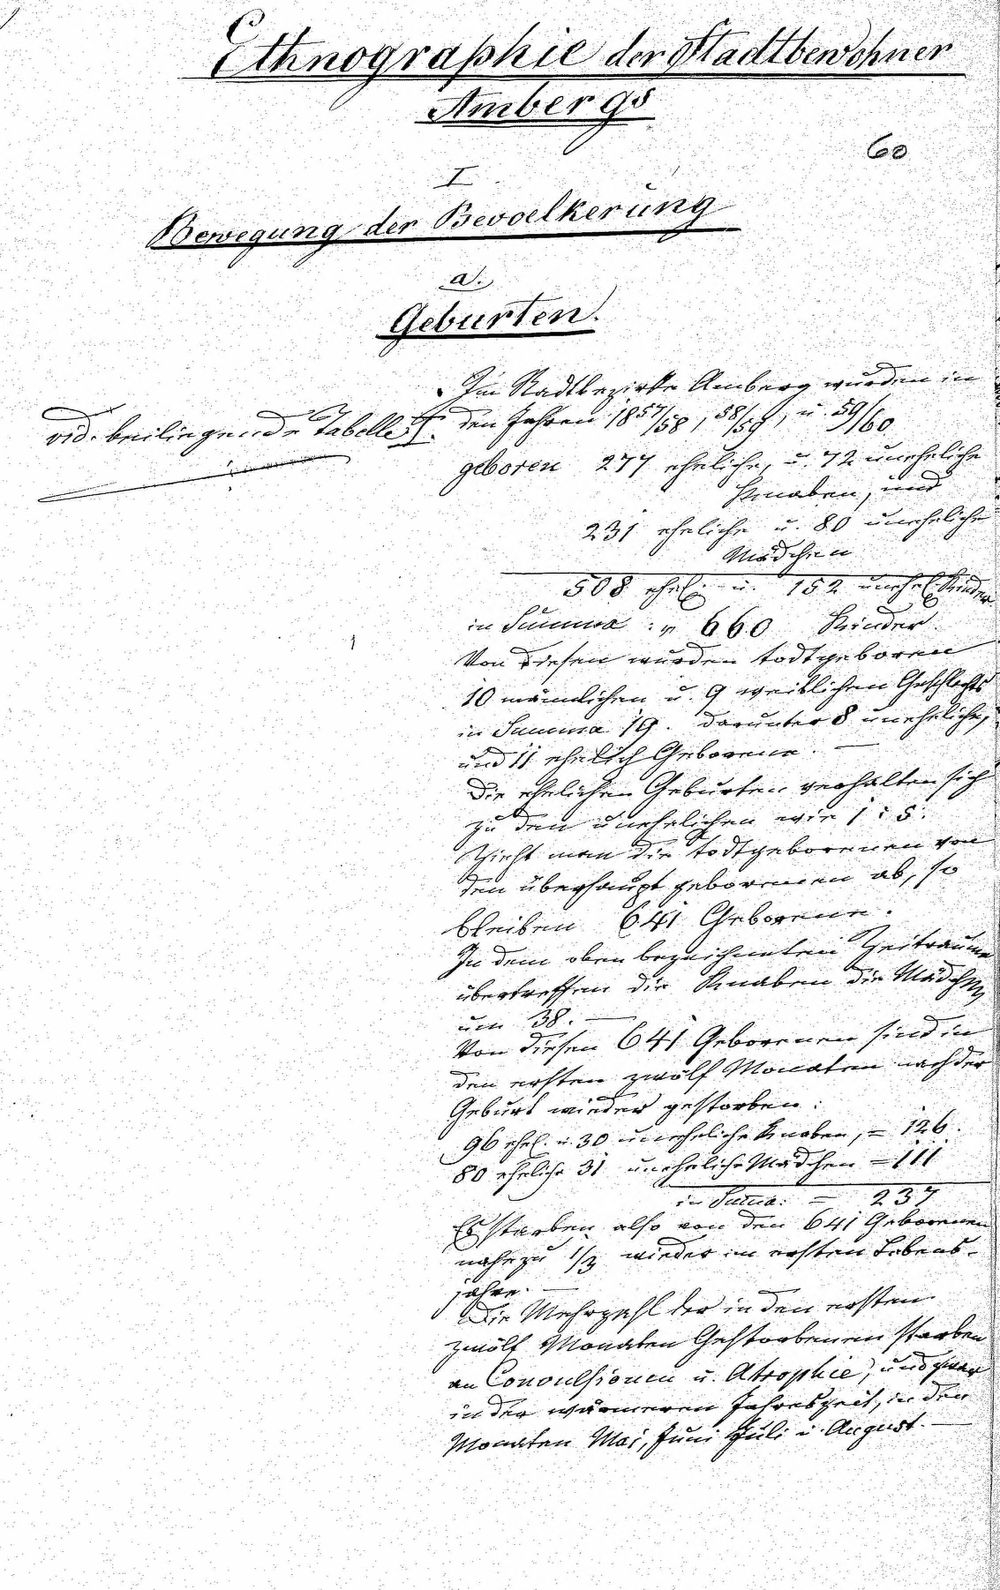 Ethnographie der Stadtbewohner
Ambergs
60
I
Bewegung der Bevoelkerung
a.
Geburten.
vid. beiliegende Tabelle I.
Im Stadtbezirke Amberg wurden in
den Jahren 1857/58, 58/59, u. 59/60
geboren 277 eheliche, u. 72 uneheliche
Knaben, und
231 eheliche u. 80 uneheliche
Mädchen
508 ehel. u. 152 unehel. Kinder
in Summa : 660 Kinder.
Von diesen wurden todtgeboren
10 männlichen u. 9 weiblichen Geschlechts
in Summa 19. darunter 8 uneheliche,
und 11 ehelich Geborene. —
Die ehelichen Geburten verhalten sich
zu den unehelichen wie 1 : 5.
Zieht man die todtgeborenen von
den überhaupt geborenen ab, so
bleiben 641 Geborene.
In dem oben bezeichneten Zeitraume
übertreffen die Knaben die Mädchen
um 38. —
Von diesen 641 Geborenen sind in
den ersten zwölf Monaten nach der
Geburt wieder gestorben :
96 ehel. u. 30 uneheliche Knaben, = 126.
80 eheliche 31 uneheliche Mädchen = 111
in Suma: = 237
Es starben also von den 641 Geborenen
nahezu 1/3 wieder im ersten Lebens-
jahre. —
Die Mehrzahl der in den ersten
zwölf Monaten Gestorbenen starben
an Convulsionen u. Atrophie, und zwar
in der wärmeren Jahreszeit, in den
Monaten Mai, Juni Juli u. August. —